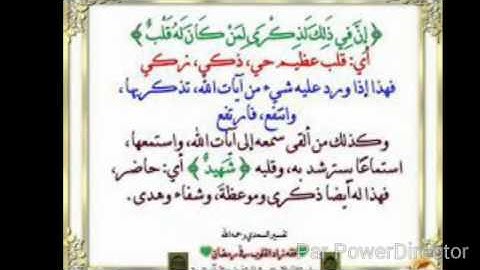 ﴿إِنَّ فِي ذَلِكَ لَذِكْرَى لِمَنْ كَانَ لَهُ قَلْبٌ﴾
أي: قلب عظيم حي، ذكي، زكي
فهذا إذا ورد عليه شيء من آيات الله، تذكر بها،
وانتفع، فارتفع
وكذلك من ألقى سمعه إلى آيات الله، واستمعها،
استماعًا يسترشد به، وقلبه ﴿شَهِيدٌ﴾ أي: حاضر،
فهذا له أيضا ذكرى وموعظة، وشفاء وهدى.
تفسير السعدي رحمه الله
Par PowerDirector